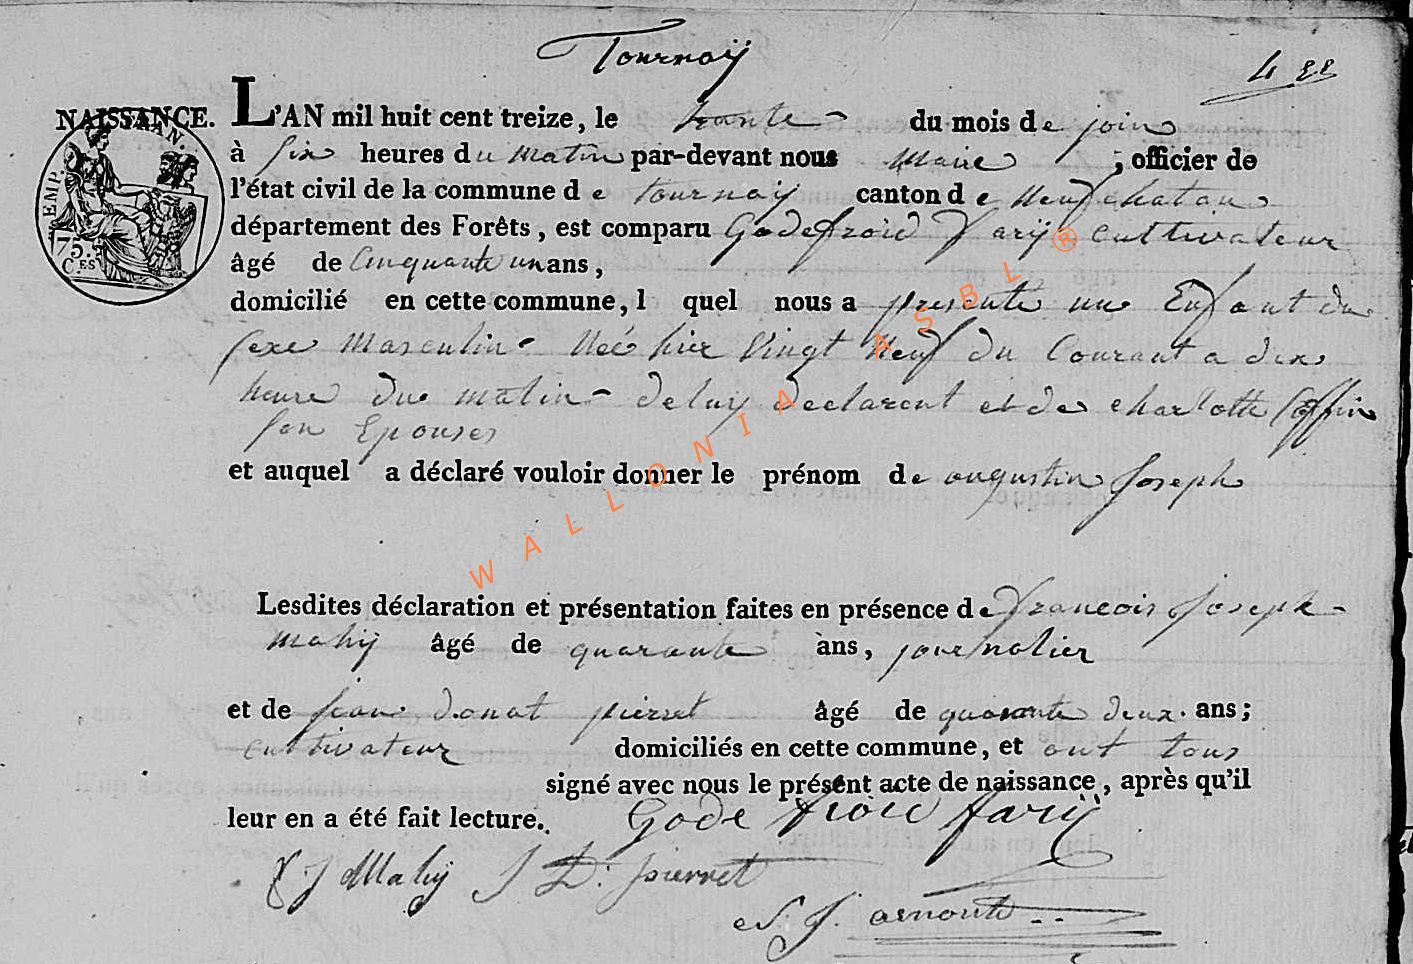 Tournaÿ
NAISSANCE. L'AN mil huit cent treize, le trante du mois de join
à six heures du matin par-devant nous Maire ; officier de
l'état civil de la commune de tournay canton de Neufchatau
département des Forêts, est comparu Godefroid farÿ cultivateur
âgé de Cinquante un ans,
domicilié en cette commune, l quel nous a presenté un Enfant du
sexe Masculin Néé hier Vingt Neuf du Courant a dix
heure du matin de luy declarent et de charlotte
son Epouses
et auquel a déclaré vouloir donner le prénom de augustin Joseph
Lesdites déclaration et présentation faites en présence de francois Joseph
Mahÿ âgé de quarante ans, journalier
et de jean donat pierret âgé de quarante deux ans;
cultivateur domiciliés en cette commune, et ont tous
signé avec nous le présent acte de naissance, après qu'il
leur en a été fait lecture. Godefroid farÿ
f J Mahÿ J D: pierret
arnould
EMP. FRAN.
75.
C.ES
WALLONIA ASBL ®